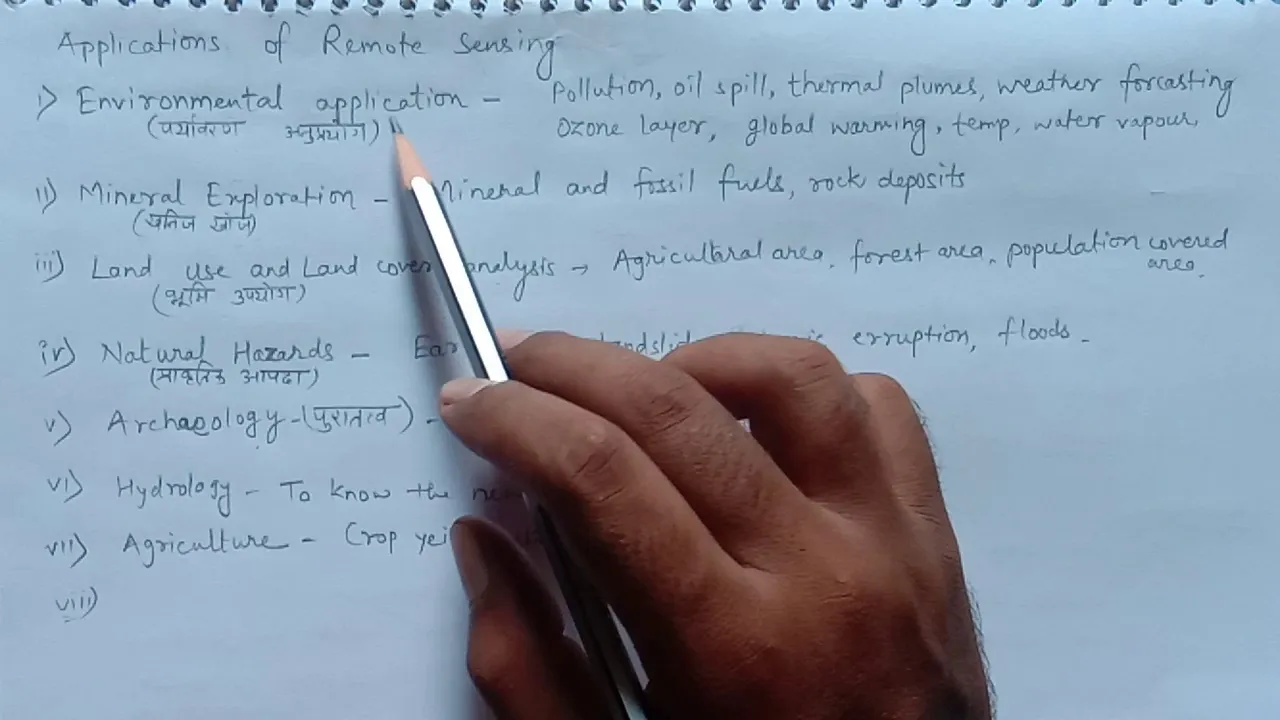 Applications of Remote Sensing
i) Environmental application - Pollution, oil spill, thermal plumes, weather forcasting
(पर्यावरण अनुप्रयोग) Ozone layer, global warming, temp, water vapour,
ii) Mineral Exploration - Mineral and fossil fuels, rock deposits
(खनिज खोज)
iii) Land use and Land cover analysis → Agricultural area, forest area, population covered
(भूमि उपयोग) area.
iv) Natural Hazards - erruption, floods -
(प्राकृतिक आपदा)
v) Archaeology - (पुरातत्व) -
vi) Hydrology - To know the
vii) Agriculture - Crop
viii)